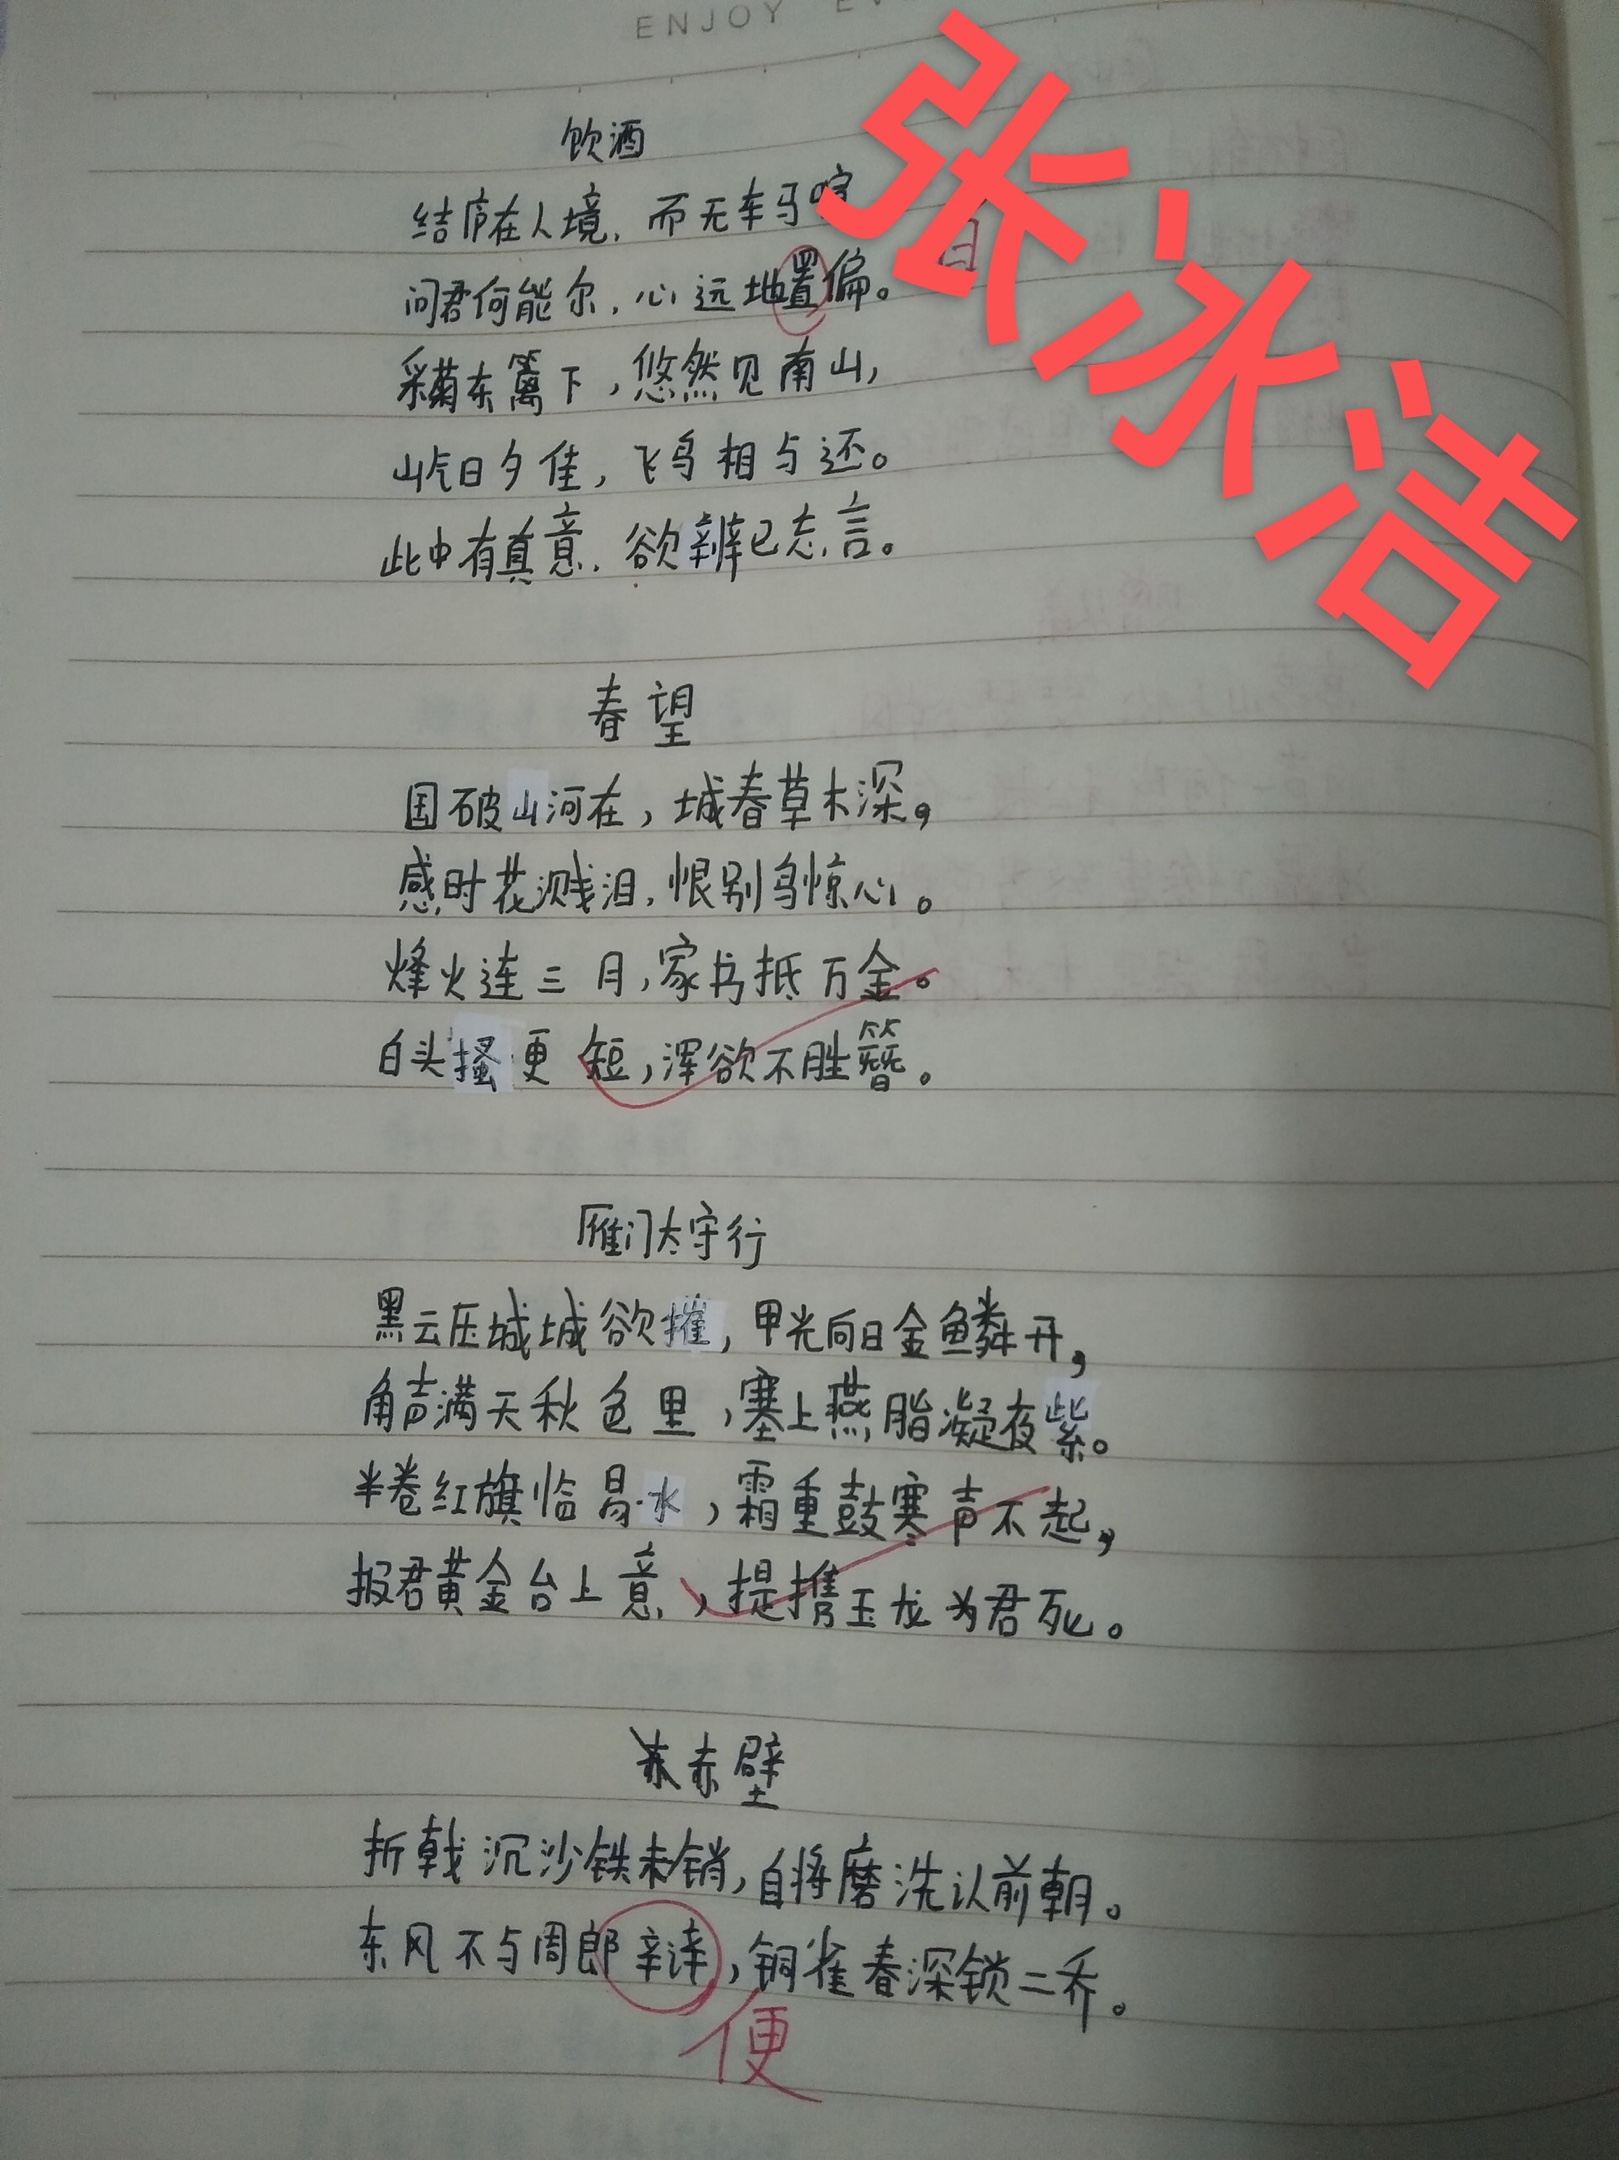 ENJOY
张冰洁
饮酒
结庐在人境，而无车马喧
问君何能尔，心远地置偏。
自
采菊东篱下，悠然见南山，
山气日夕佳，飞鸟相与还。
此中有真意，欲辨已忘言。
春望
国破山河在，城春草木深，
感时花溅泪，恨别鸟惊心。
烽火连三月，家书抵万金。
白头搔更短，浑欲不胜簪。
雁门太守行
黑云压城城欲摧，甲光向日金鳞开，
角声满天秋色里，塞上燕脂凝夜紫。
半卷红旗临易水，霜重鼓寒声不起，
报君黄金台上意，提携玉龙为君死。
赤壁
折戟沉沙铁未销，自将磨洗认前朝。
东风不与周郎，铜雀春深锁二乔。
便